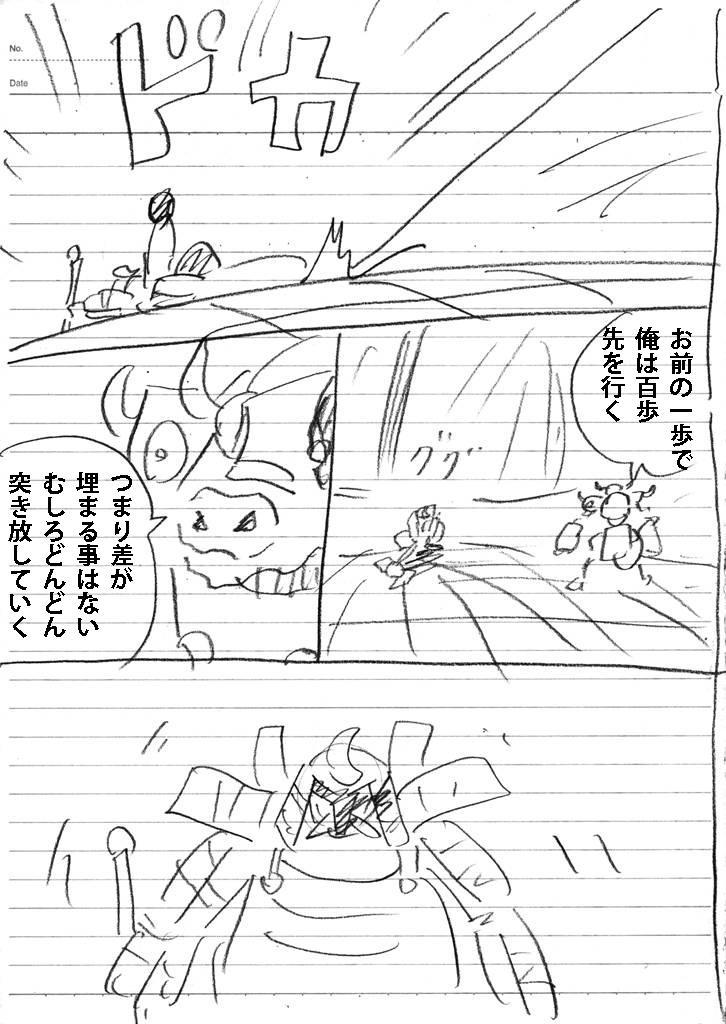 No.
Date
ドカ
お前の一歩で
俺は百歩
先を行く
ググ
つまり差が
埋まる事はない
むしろどんどん
突き放していく